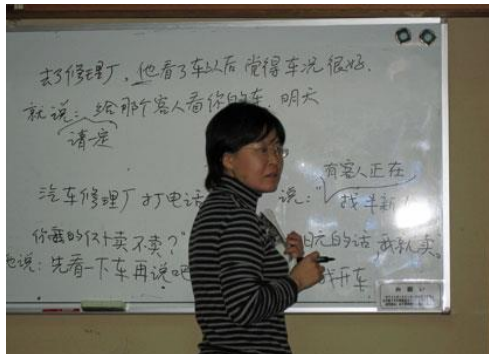 去了修理厂，他看了车以后 觉得车况很好.
就说：给那个客人看你的车. 明天
请一定
有客人正在
汽车修理厂 打电话 说："找半新
卖不卖？" 日元的话 我就卖。
说：先看一下车再说吧 我开车